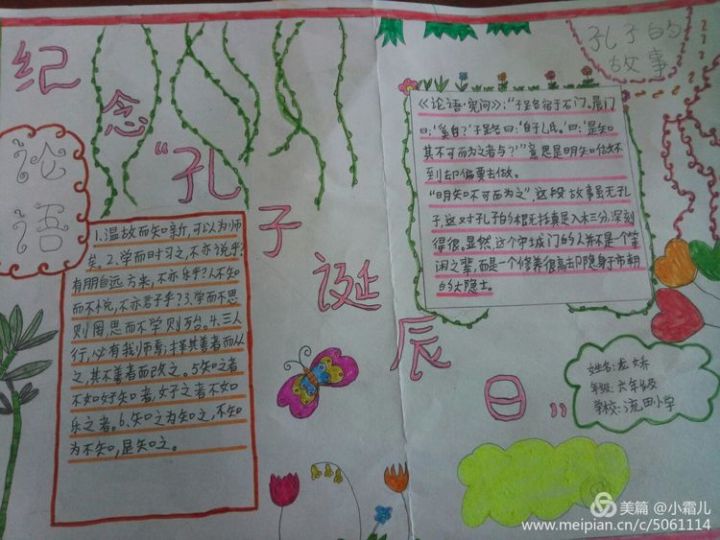 纪念“孔子诞辰日”
论语
1.温故而知新,可以为师
矣。2.学而时习之,不亦说乎?
有朋自远方来,不亦乐乎?人不知
而不愠,不亦君子乎?3.学而不思
则罔,思而不学则殆。4.三人
行,必有我师焉,择其善者而从
之,其不善者而改之。5.知之者
不如好知者,好之者不如
乐之者。6.知之为知之,不知
为不知,是知之。
孔子的
故事
《论语·宪问》:“子路宿于石门。晨门
曰:‘奚自?’子路曰:‘自孔氏。’曰:‘是知
其不可而为之者与?’”意思是明知做不
到却偏要去做。
“明知不可而为之”这段故事虽无孔
子,这对孔子的
真是入木三分,深刻
得很。显然,这个守城门的人并不是一个等
闲之辈,而是一个修养很高却隐身于市朝
的大隐士。
姓名:龙娇
年级:六年级
学校:流田小学
美篇 @小霜儿
www.meipian.cn/c/5061114